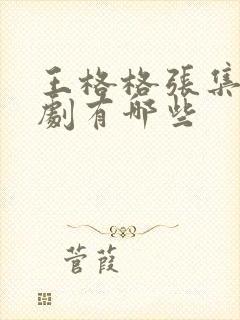 王格格張集
劇有哪些
菅葭